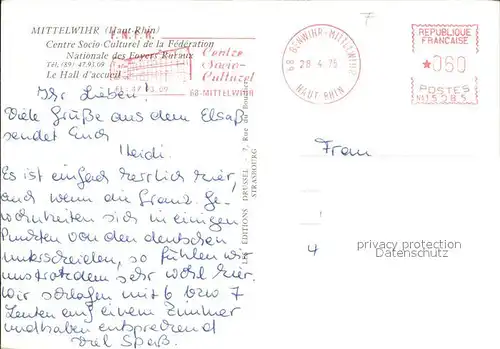 MITTELWIHR (Haut-Rhin)
Centre Socio-Culturel de la Fédération
Nationale des Foyers Ruraux
Tél. (89) 47.93.09
Le Hall d'accueil
F.N.F.R.
Centre
Socio-
Culturel
68-MITTELWIHR
68 BENNWIHR-MITTELWIHR
28-4 75
HAUT-RHIN
REPUBLIQUE
FRANCAISE
★060
POSTES
Ihr Lieben!
Viele Grüße aus dem Elsaß
sendet Euch
Heidi.
Es ist einfach herrlich hier,
auch wenn die franz. Ge-
wohnheiten sich in einigen
Punkten von den deutschen
unterscheiden, so fühlen wir
uns trotzdem sehr wohl hier.
Wir schlafen mit 6 bzw 7
Leuten auf einem Zimmer
und haben entsprechend
viel Spaß.
LES EDITIONS DRUSSEL - 7, Rue du Bouclier
STRASBOURG
Frau
4
privacy protection
Datenschutz